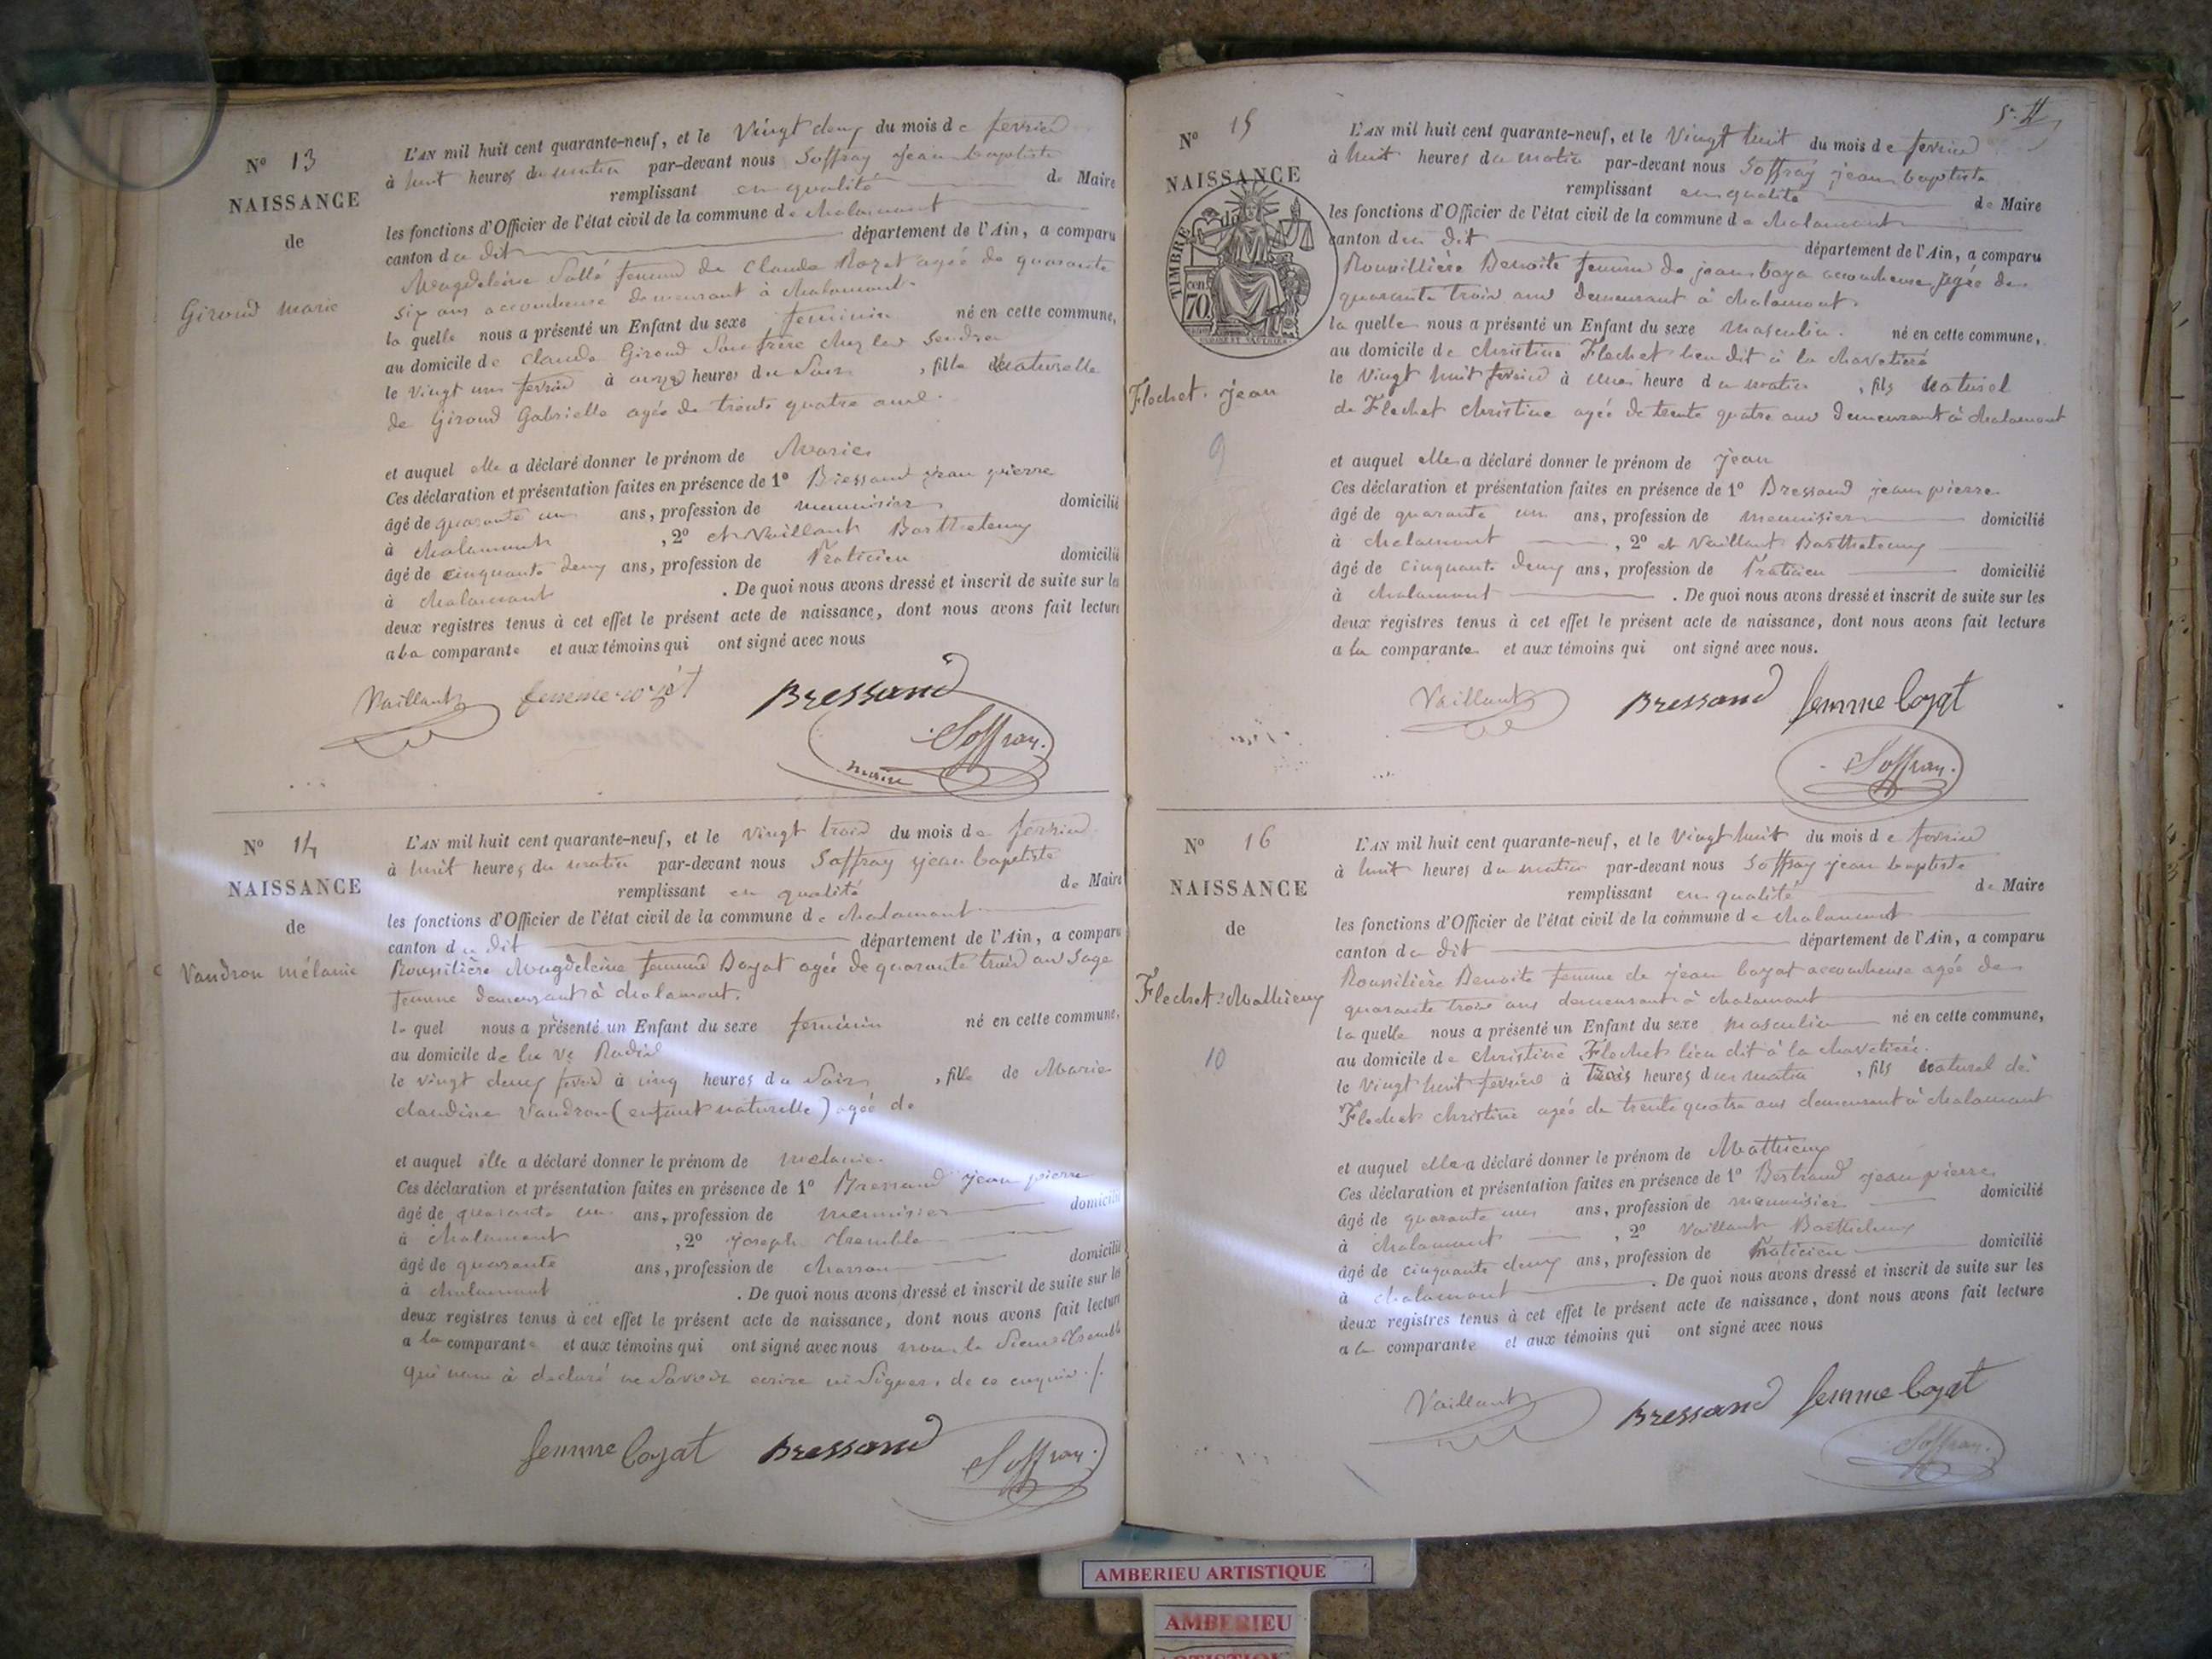 N° 13
NAISSANCE
de
Giroud marie
L'AN mil huit cent quarante-neuf, et le Vingt deux du mois de fevrier
à huit heures du matin par-devant nous Soffray jean baptiste
remplissant en qualité de Maire
les fonctions d'Officier de l'état civil de la commune de chalamont
canton du dit département de l'Ain, a comparu
Magdeleine femme de Claude Rozet agée de quarante
six ans accoucheuse demeurant à chalamont.
la quelle nous a présenté un Enfant du sexe feminin né en cette commune,
au domicile de Claude Giroud Son frère chez les
le vingt un fevrier à onze heures du Soir, fille Naturelle
de Giroud Gabrielle agée de trente quatre ans.
et auquel elle a déclaré donner le prénom de Marie
Ces déclaration et présentation faites en présence de 1° Bressand jean pierre
âgé de quarante un ans, profession de menuisier domicilié
à chalamont, 2° et Vaillant Barthelemy
âgé de cinquante deux ans, profession de Praticien domicilié
à chalamont. De quoi nous avons dressé et inscrit de suite sur les
deux registres tenus à cet effet le présent acte de naissance, dont nous avons fait lecture
a la comparante et aux témoins qui ont signé avec nous
Vaillant femme rozèt Bressand
Soffray.
maire
N° 14
NAISSANCE
de
Vaudran mélanie
L'AN mil huit cent quarante-neuf, et le Vingt trois du mois de fevrier
à huit heures du matin par-devant nous Soffray jean baptiste
remplissant en qualité de Maire
les fonctions d'Officier de l'état civil de la commune de chalamont
canton du dit département de l'Ain, a comparu
Roussilière Magdeleine femme Boyat agée de quarante trois ans Sage
femme demeurant à chalamont.
la quel nous a présenté un Enfant du sexe feminin né en cette commune,
au domicile de la Ve
le vingt deux fevrier à cinq heures du Soir, fille de Marie
claudine Vaudran (enfant naturelle) agée de
et auquel elle a déclaré donner le prénom de mélanie.
Ces déclaration et présentation faites en présence de 1° Bressand jean pierre
âgé de quarante un ans, profession de menuisier domicilié
à chalamont, 2° Joseph Tremble
âgé de quarante ans, profession de charron domicilié
à chalamont. De quoi nous avons dressé et inscrit de suite sur les
deux registres tenus à cet effet le présent acte de naissance, dont nous avons fait lecture
a la comparante et aux témoins qui ont signé avec nous non le Sieur Tremble
qui nous à declaré ne Savoir écrire ni Signer. de ce enquis ./.
femme boyat Bressand Soffray.
N° 15
NAISSANCE
de
TIMBRE
70
cen
Flechet. Jean
9
L'AN mil huit cent quarante-neuf, et le Vingt huit du mois de fevrier
à huit heures du matin par-devant nous Soffray jean baptiste
remplissant en qualité de Maire
les fonctions d'Officier de l'état civil de la commune de chalamont
canton du dit département de l'Ain, a comparu
Roussillière Benoite femme de jean boya accoucheuse, agée de
quarante trois ans demeurant à chalamont.
la quelle nous a présenté un Enfant du sexe masculin. né en cette commune,
au domicile de christine Flechet lieu dit à la chavetiere
le Vingt huit fevrier à une heure du matin, fils Naturel
de Flechet christine agée de trente quatre ans demeurant à chalamont
et auquel elle a déclaré donner le prénom de jean
Ces déclaration et présentation faites en présence de 1° Bressand jean pierre
âgé de quarante un ans, profession de menuisier domicilié
à chalamont, 2° et Vaillant Barthelemy
âgé de cinquante deux ans, profession de Praticien domicilié
à chalamont. De quoi nous avons dressé et inscrit de suite sur les
deux registres tenus à cet effet le présent acte de naissance, dont nous avons fait lecture
a la comparante et aux témoins qui ont signé avec nous.
Vaillant Bressand femme boyat
Soffray.
N° 16
NAISSANCE
de
Flechet. Mathieux
10
L'AN mil huit cent quarante-neuf, et le Vingt huit du mois de fevrier
à huit heures du matin par-devant nous Soffray jean baptiste
remplissant en qualité de Maire
les fonctions d'Officier de l'état civil de la commune de chalamont
canton du dit département de l'Ain, a comparu
Roussilière Benoite femme de jean boyat accoucheuse agée de
quarante trois ans demeurant à chalamont
la quelle nous a présenté un Enfant du sexe masculin né en cette commune,
au domicile de christine Flechet lieu dit à la chavetiere.
le Vingt huit fevrier à trois heures du matin, fils Naturel de
Flechet christine agée de trente quatre ans demeurant à chalamont
et auquel elle a déclaré donner le prénom de Mathieux
Ces déclaration et présentation faites en présence de 1° Bertrand jean pierre
âgé de quarante un ans, profession de menuisier domicilié
à chalamont, 2° Vaillant Barthelemy
âgé de cinquante deux ans, profession de Praticien domicilié
à chalamont. De quoi nous avons dressé et inscrit de suite sur les
deux registres tenus à cet effet le présent acte de naissance, dont nous avons fait lecture
a la comparante et aux témoins qui ont signé avec nous
Vaillant Bressand femme boyat
Soffray.
AMBERIEU ARTISTIQUE
AMBERIEU
ARTISTIQUE